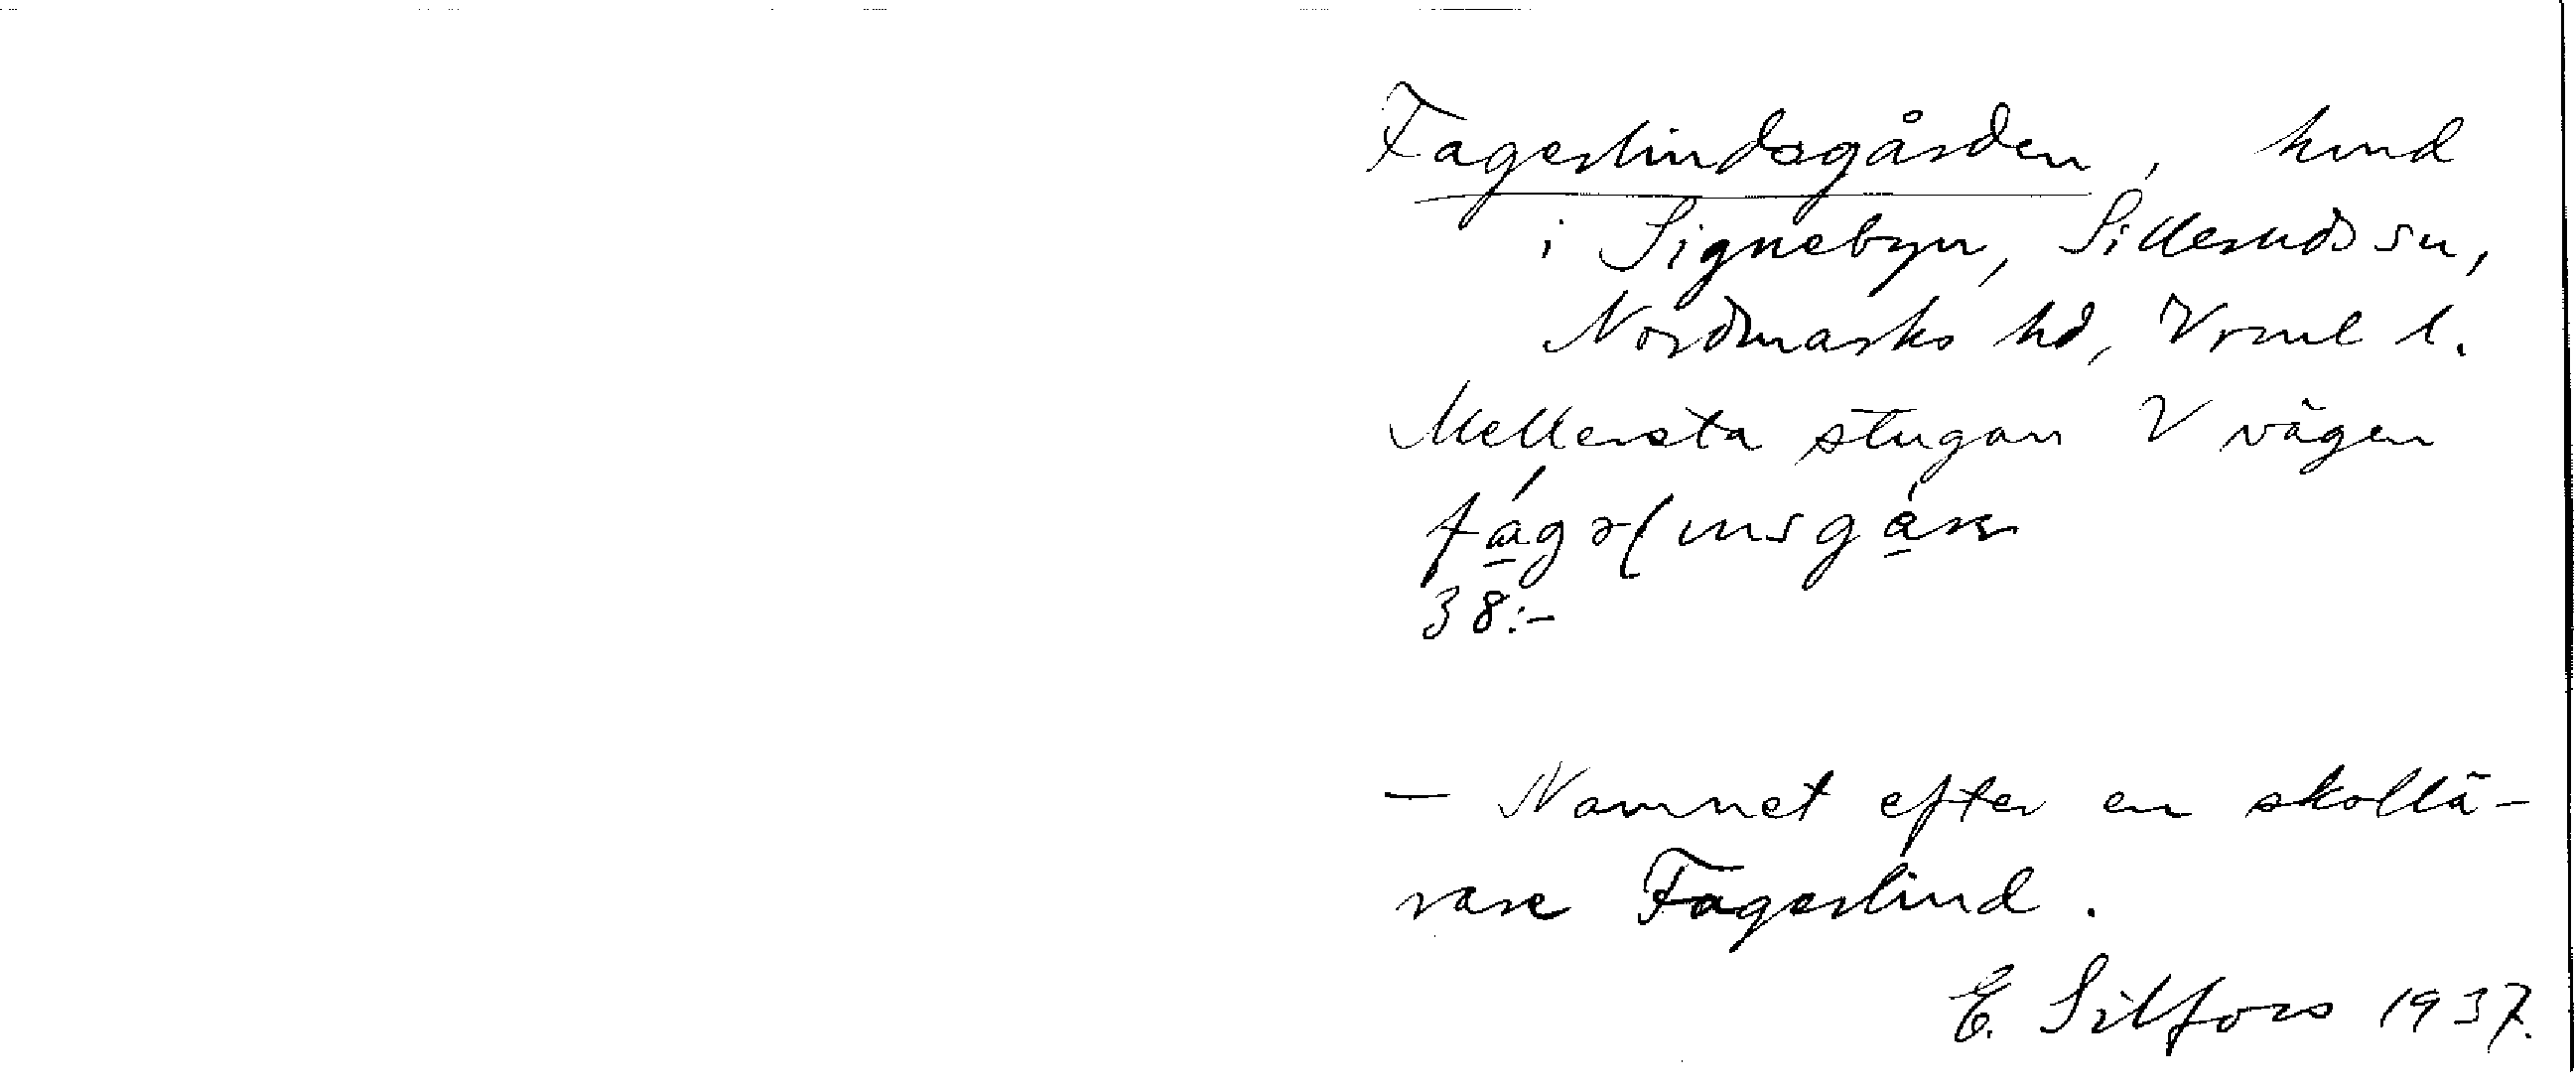 Fagerlindsgården, hmd
i Signebyn, Silleruds sn,
Nordmarks hd, Vrml l.
Mellersta stugan V vägen
38:-
— Namnet efter en skollä-
rare Fagerlind.
E. Silfors 1937.